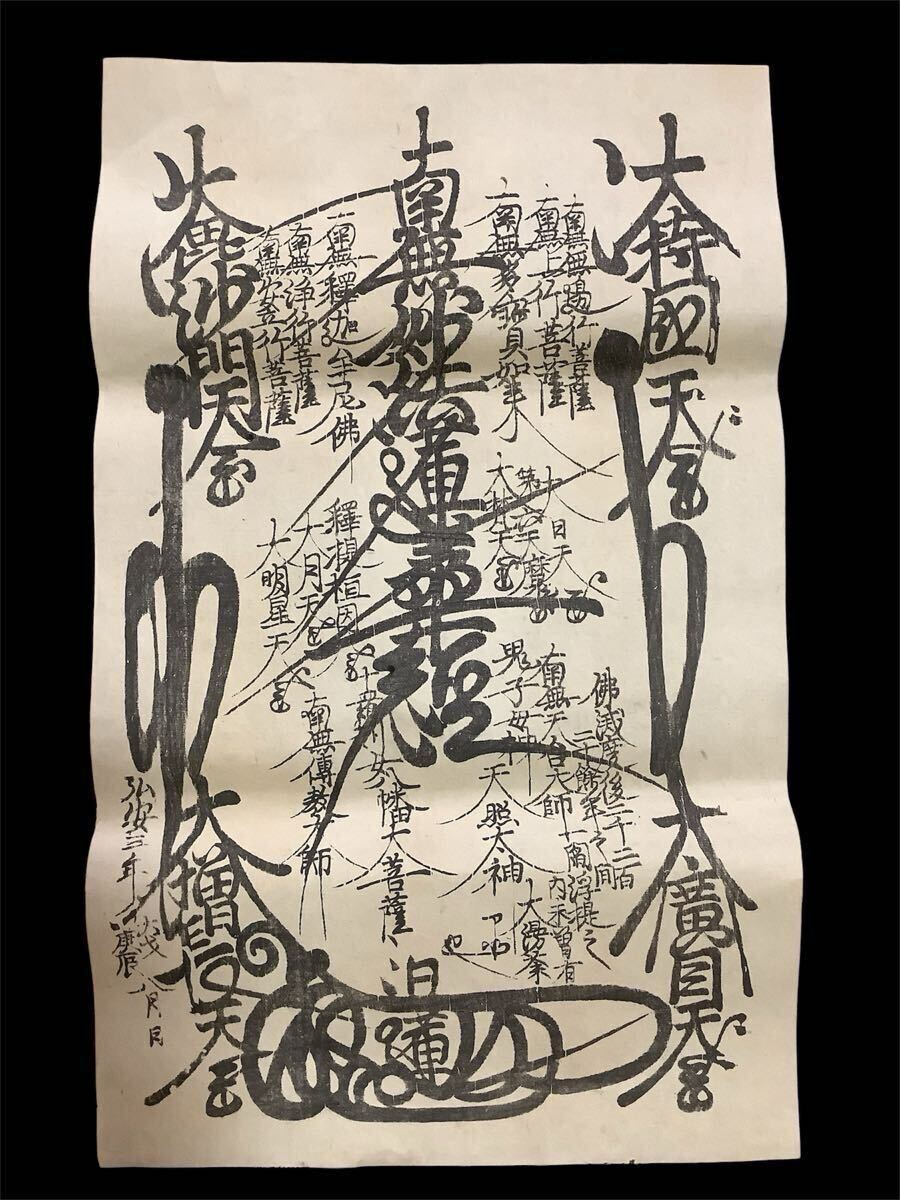 大持國天王
南無無邊行菩薩
南無上行菩薩
南無多寶如來
南無妙法蓮華經
南無釋迦牟尼佛
南無淨行菩薩
南無安立行菩薩
大毗沙門天王
大日天王
第六天魔王
大梵天王
釋提桓因
大月天王
大明星天王
佛滅度後二千二百
二十餘年之間
一閻浮提之
內未曾有
大漫荼
羅也
南無天台大師
鬼子母神
天照太神
十羅刹女
八幡大菩薩
南無傳教大師
大廣目天王
日蓮
大增長天王
弘安三年
庚辰
八月 日